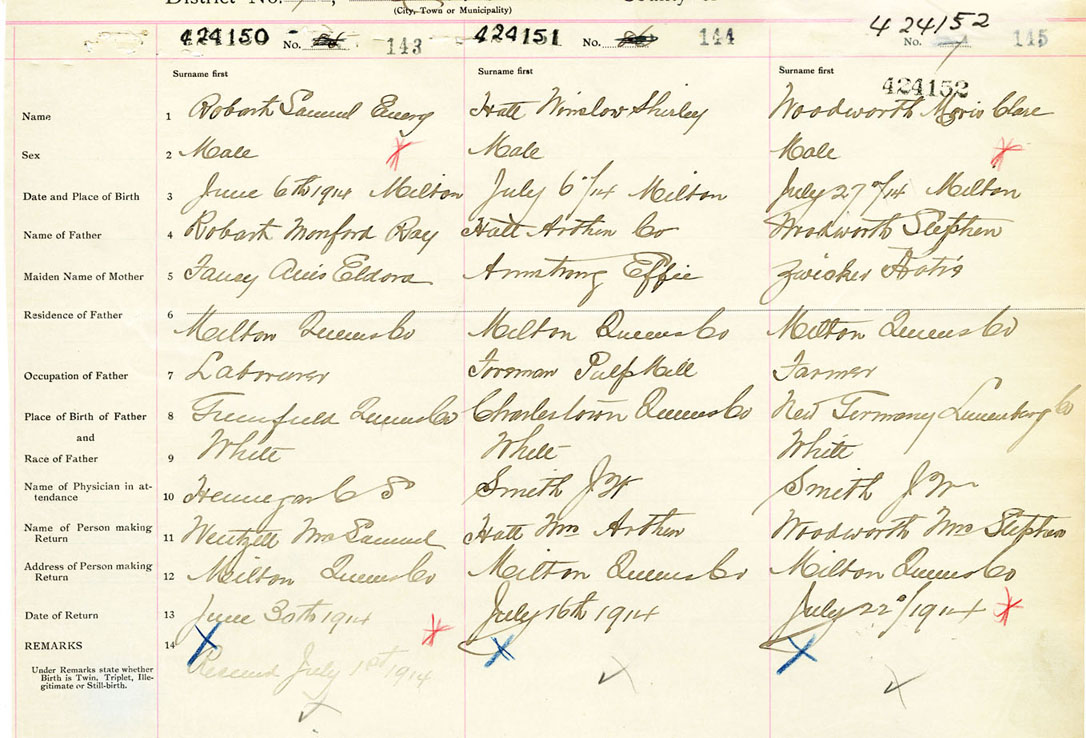 District No.
(City, Town or Municipality)
424150 No. 143 424151 No. 144 424152 No. 145
Surname first Surname first Surname first
424152
Name 1 Robart Samuel Emery Hatt Winslow Shirley Woodworth Moris Clare
Sex 2 Male Male Male
Date and Place of Birth 3 June 6th 1914 Milton July 6"/14 Milton July 27"/14 Milton
Name of Father 4 Robart Monford Ray Hatt Arthur Co Woodworth Stephen
Maiden Name of Mother 5 Eldora Armstrong Effie Zwicker
Residence of Father 6 Milton Queens Co Milton Queens Co Milton Queens Co
Occupation of Father 7 Labourer Foreman Pulp Mill Farmer
Place of Birth of Father 8 Greenfield Queens Co Charlestown Queens Co New Germany Lunenburg Co
and
Race of Father 9 White White White
Name of Physician in at-
tendance 10 Hennegar C S Smith J W Smith J W
Name of Person making
Return 11 Wentzell Mrs Samuel Hatt Mrs Arthur Woodworth Mrs Stephen
Address of Person making
Return 12 Milton Queens Co Milton Queens Co Milton Queens Co
Date of Return 13 June 30th 1914 July 16th 1914 July 22"/1914
REMARKS 14
Under Remarks state whether
Birth is Twin, Triplet, Ille-
gitimate or Still-birth.
Received July 1st 1914